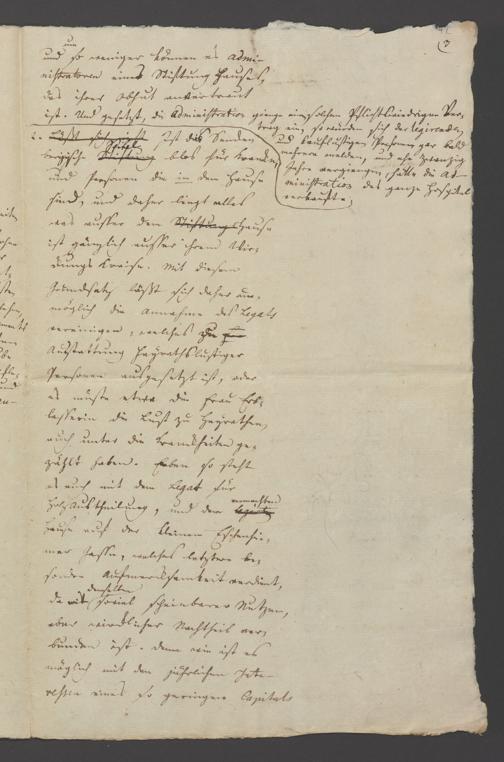 um
und so weniger können es Admi-
nistratoren eines Stiftung Hauses,
das ihrer Obhut anvertraut
ist. Und gesetzt, die Administration gienge einsolchen Pflichtwiedrigen Ver-
trag ein, so würden sich der
und kauflustigen Personen gar bald
mehrere melden, und ehe zwanzig
Jahre vergiengen, hätte die Ad-
ministration das ganze Hospital
verkauft.
2. Ist das Senken-
Spital
bergische Stiftung blos für Kranke,
und Personen die in dem Hause
sind, und daher liegt alles
was ausser dem Stiftungshause
ist gänzlich ausser ihrem Wir-
kungs Kreise. Mit diesem
Grundsatz läßt sich daher un-
möglich die Annahme des Legats
vereinigen, welches zu
Ausstattung Heyrathslustiger
Personen ausgesetzt ist, oder
es müste etwa die Frau Erb-
lasserin die Lust zu Heyrathen,
auch unter die Krankheiten ge-
zählt haben. Eben so steht
es auch mit dem Legat für
Holzaustheilung, und dem
vermachten
Hause auf der kleinen Eschenhei-
mer Gasse, welches letztere be-
sondre Aufmerksamkeit verdient,
da mit soviel scheinbarer Nutzen,
aber wirklicher Nachtheil ver-
bunden ist. Denn wie ist es
möglich mit den jährlichen Inte-
ressen eines so geringen Capitals